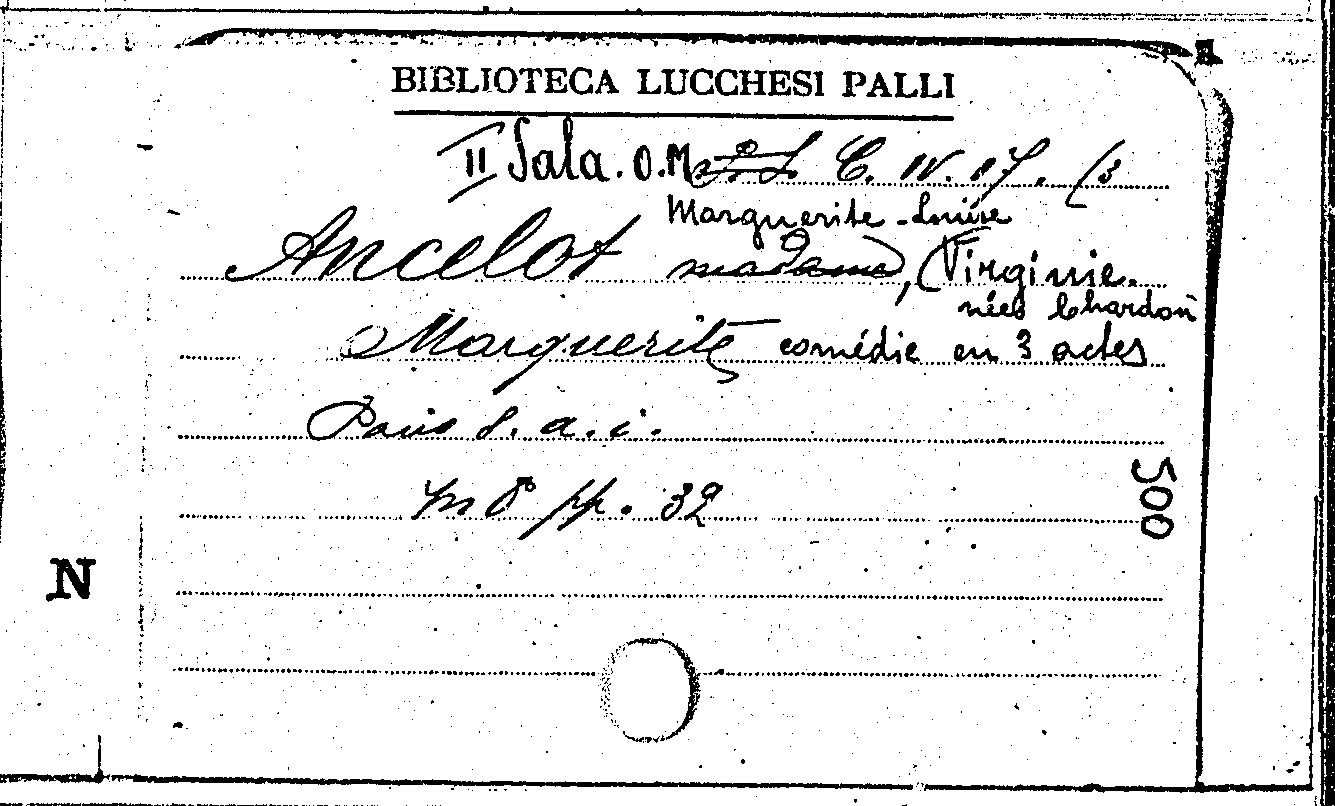 BIBLIOTECA LUCCHESI PALLI
II Sala. O.M. C. IV. 17. (3
Marguerite-Louise
Ancelot madame, (Virginie.
née Chardon
Marguerite comédie en 3 actes
Paris S. a. i.
in 8° pp. 32
500
N